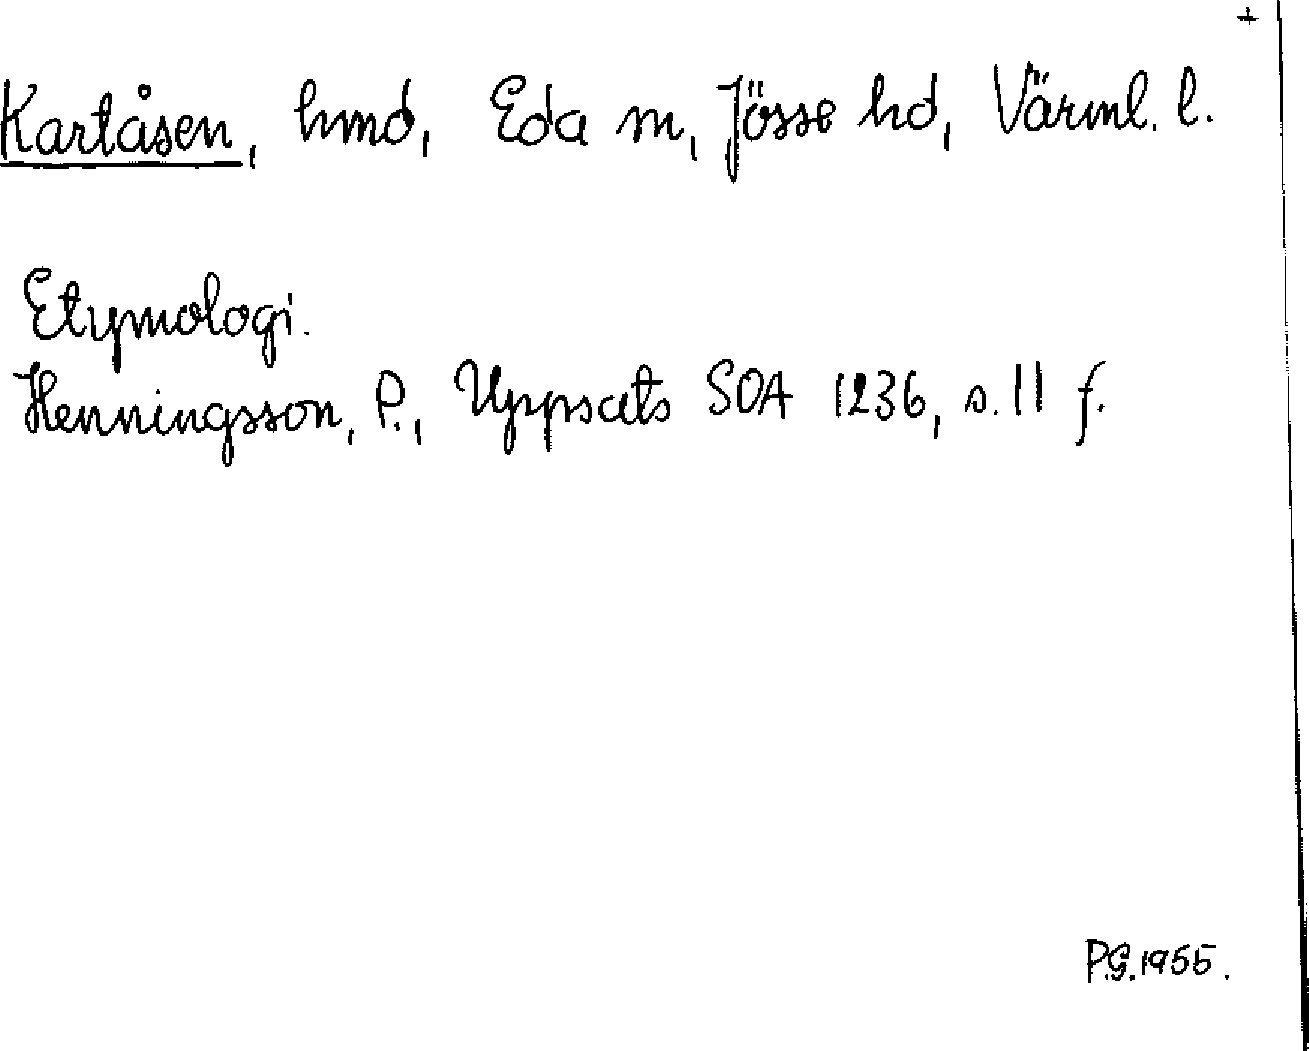 +
Kartåsen, hmd, Eda sn, Jösse hd, Värml. l.
Etymologi.
Henningsson, P., Uppsats SOA 1236, s. 11 f.
P.G. 1955.